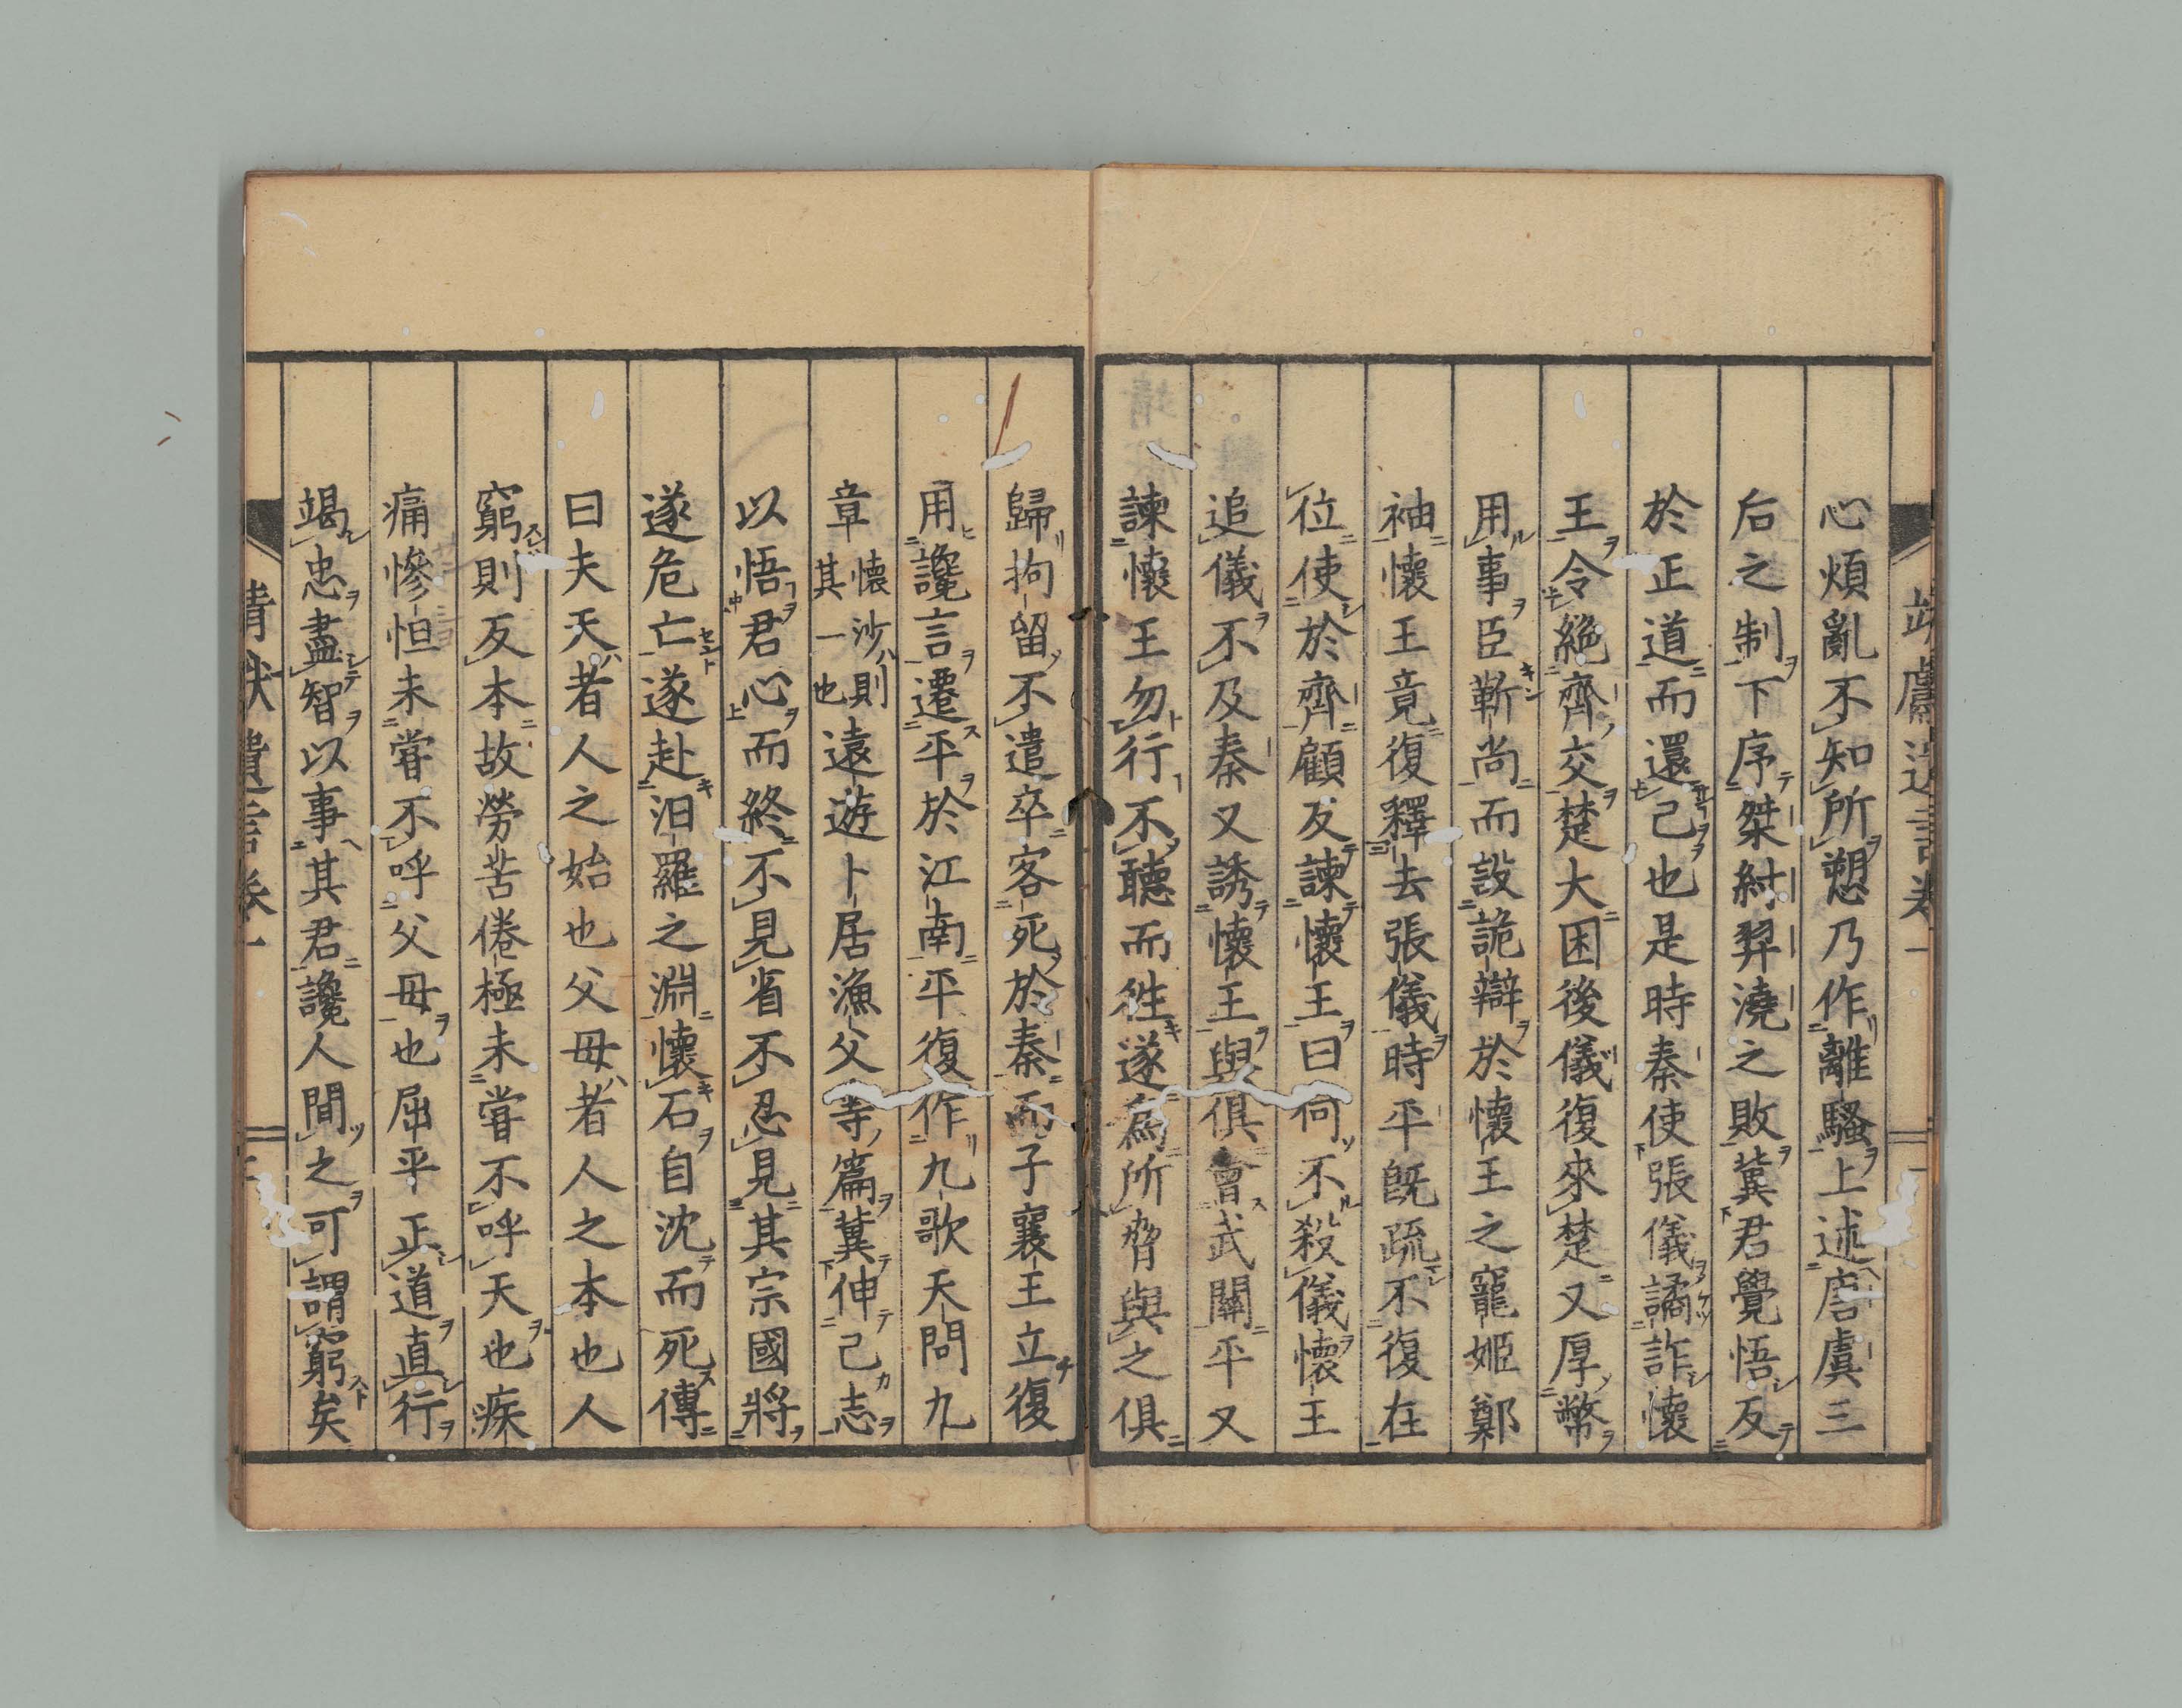 心煩亂不知所愬乃作離騷上述唐虞三
后之制下序桀紂羿澆之敗冀君覺悟反
於正道而還己也是時秦使張儀譎詐懷
王令絶齊交楚大困後儀復來楚又厚幣
用事臣靳尚而設詭辯於懷王之寵姬鄭
袖懷王竟復釋去張儀時平既疏不復在
位使於齊顧反諫懷王曰何不殺儀懷王
追儀不及秦又誘懷王與俱會武關平又
諫懷王勿行不聽而徃遂爲所脅與之俱
歸拘留不遣卒客死於秦而子襄王立復
用讒言遷平於江南平復作九歌天問九
章懷沙則其一也遠遊卜居漁父等篇冀伸己志
以悟君心而終不見省不忍見其宗國將
遂危亡遂赴汨羅之淵懷石自沈而死傳
曰夫天者人之始也父母者人之本也人
窮則反本故勞苦倦極未嘗不呼天也疾
痛慘怛未嘗不呼父母也屈平正道直行
竭忠盡智以事其君讒人間之可謂窮矣